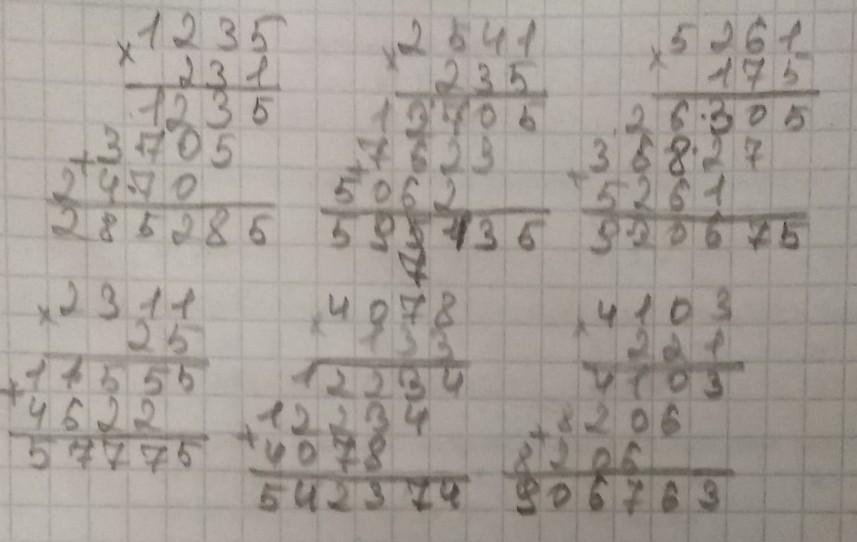 ×1235
231
1235
+3705
2470
285285
×2541
235
12705
+7623
5082
599135
7
×5261
175
26305
+36827
5261
920675
×2311
25
11555
+4622
57775
×4078
133
12234
+12234
4078
542374
×4103
221
4103
+8206
8206
906763